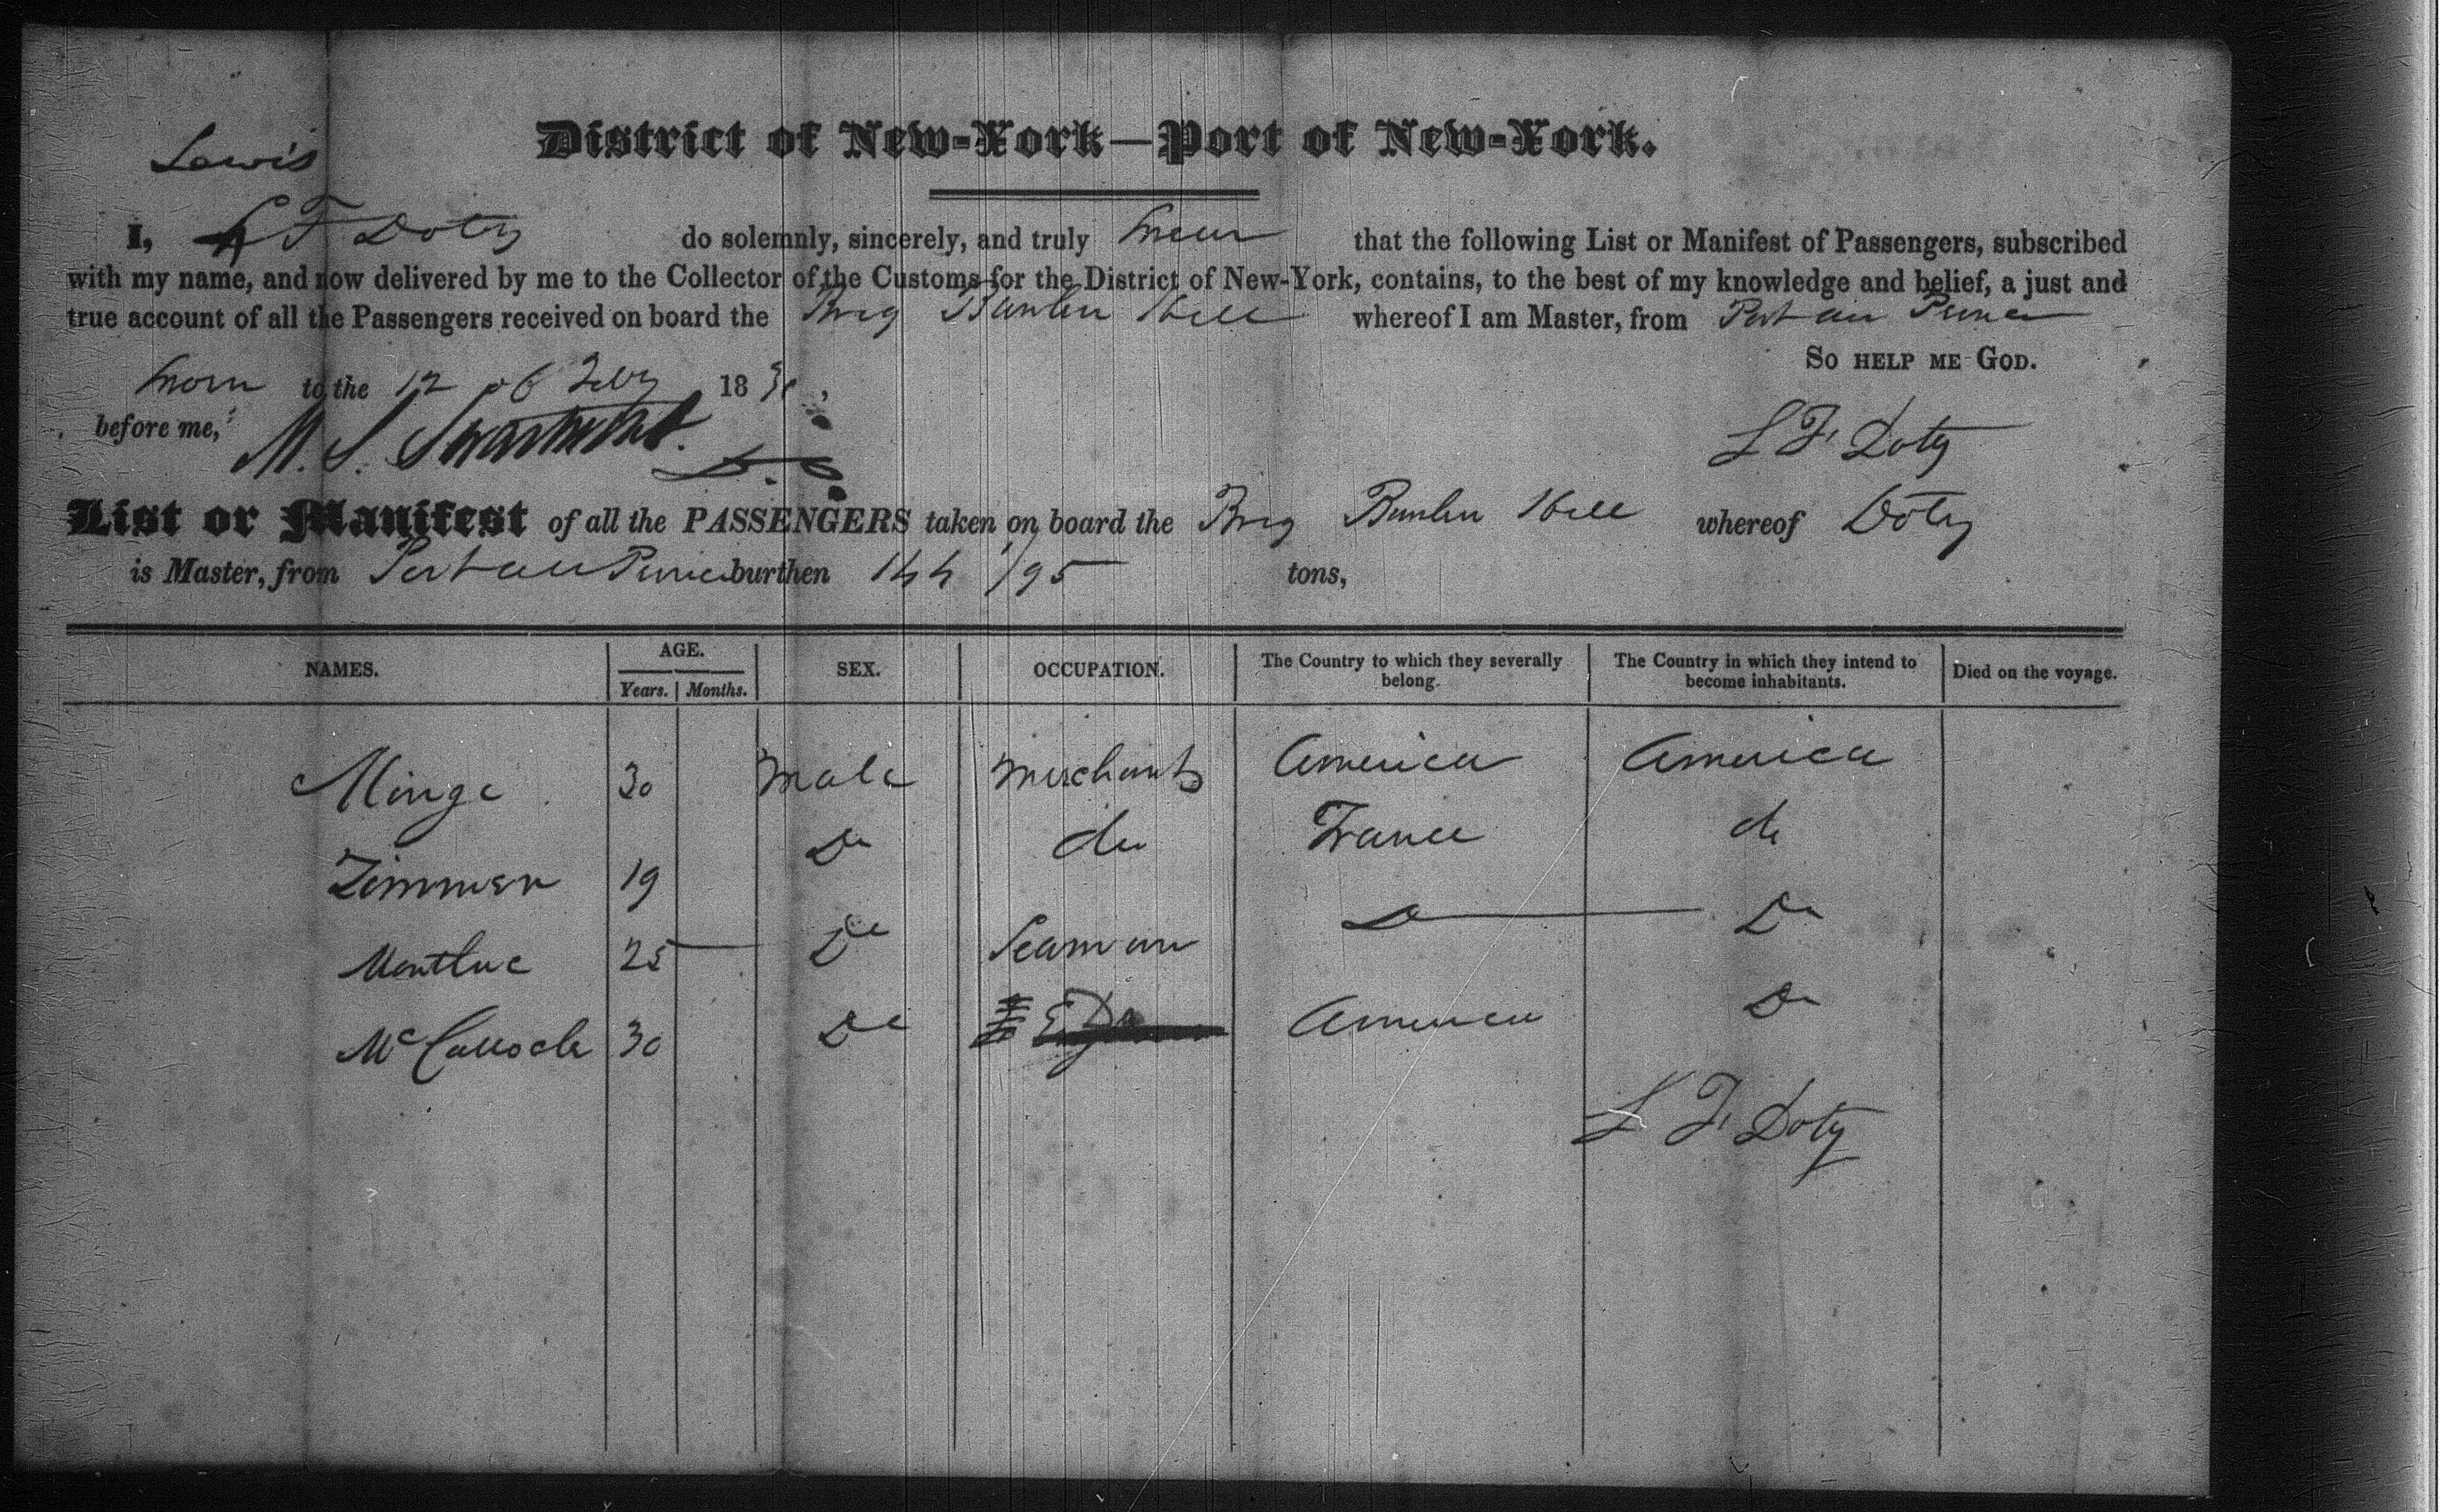 District of New-York—Port of New-York.
Lewis
I, L F Doty do solemnly, sincerely, and truly swear that the following List or Manifest of Passengers, subscribed
with my name, and now delivered by me to the Collector of the Customs for the District of New-York, contains, to the best of my knowledge and belief, a just and
true account of all the Passengers received on board the Brig Bunker Hill whereof I am Master, from Port au Prince
So help me God.
Sworn to the 12 of Feby 18
before me, M. S. Swartwout. L F Doty
List or Manifest of all the PASSENGERS taken on board the Brig Bunker Hill whereof Doty
is Master, from Port au Prince burthen 144 /95 tons,
NAMES. AGE. SEX. OCCUPATION. The Country to which they severally belong. The Country in which they intend to become inhabitants. Died on the voyage.
Years. Months.
Minge 30 Male Merchant America America
Zimmer 19 Do do France do
Montluc 25 Do Seaman Do Do
McCulloch 30 Do America Do
L F Doty